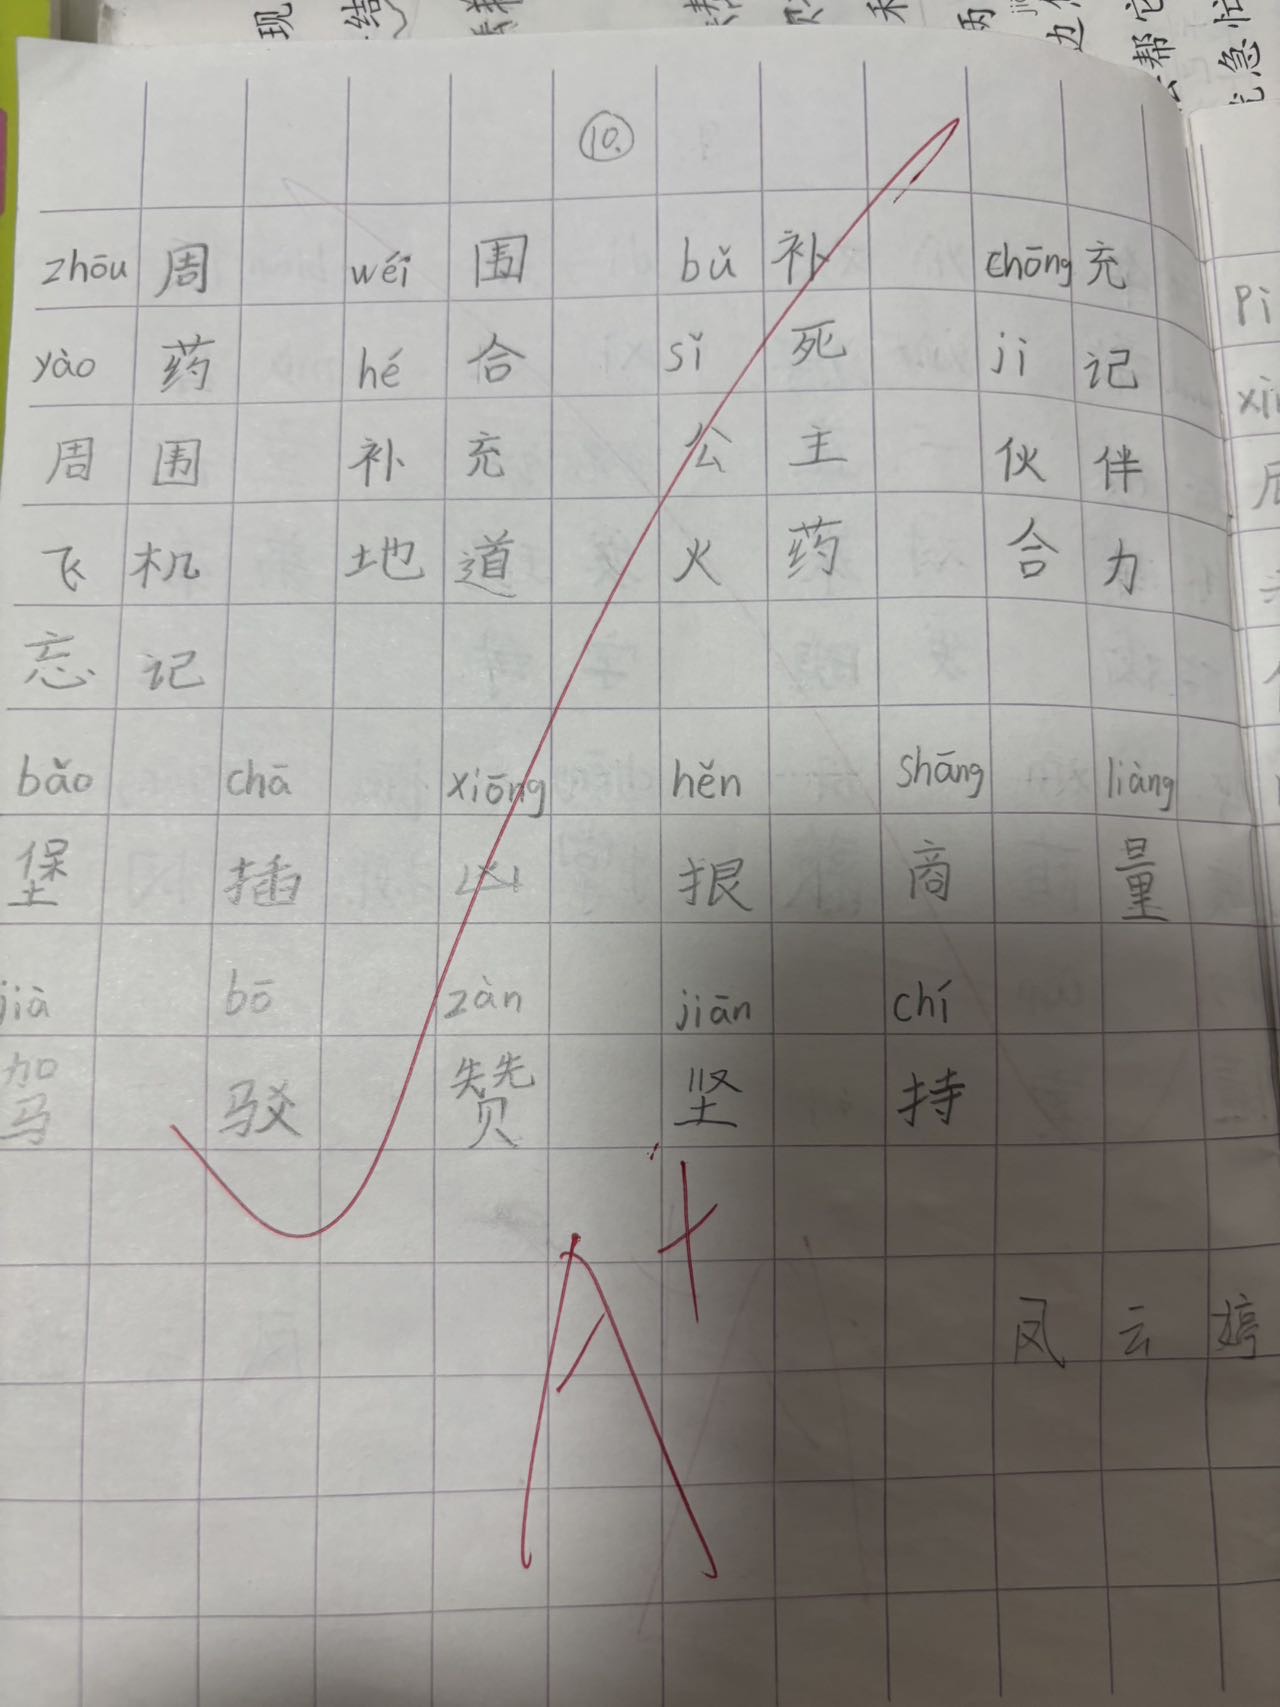 ⑩.
zhōu 周 wéi 围 bǔ 补 chōng 充
yào 药 hé 合 sǐ 死 jì 记
周围 补充 公主 伙伴
飞机 地道 火药 合力
忘记
bǎo chā xiōng hěn shāng liàng
堡 插 凶 狠 商 量
jià bō zàn jiān chí
驾 驳 赞 坚 持
A+
凤云婷